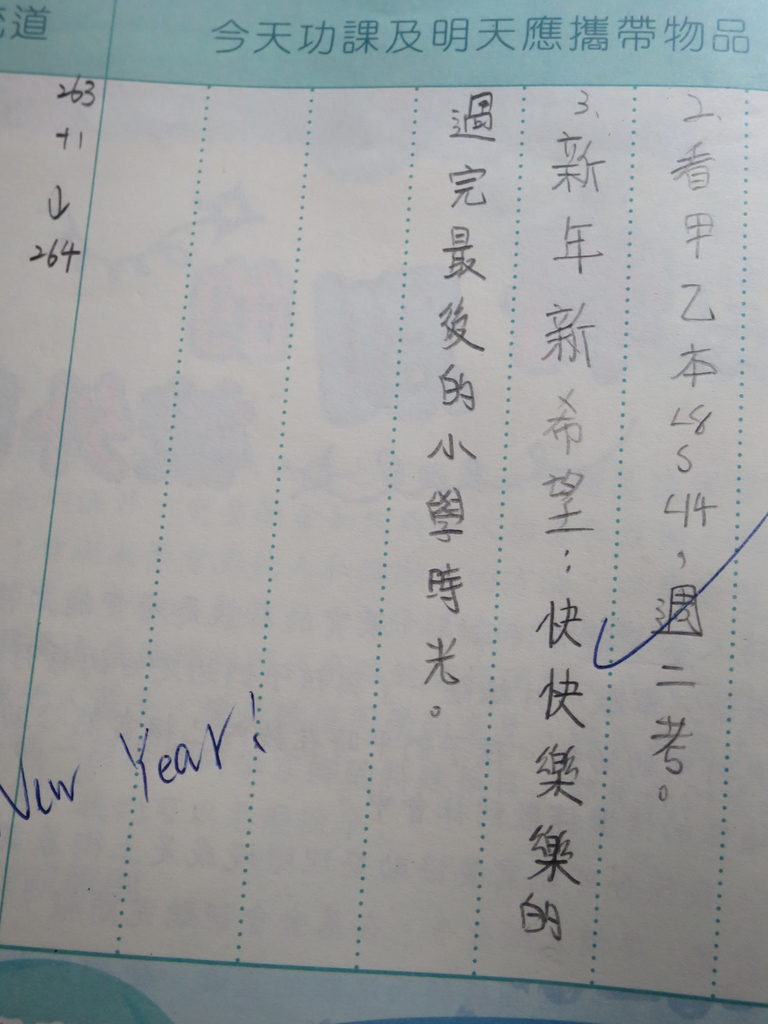 今天功課及明天應攜帶物品
2.看甲乙本28~44,週二考。
3.新年新希望:快快樂樂的
過完最後的小學時光。
流道
263
+1
↓
264
New Year!